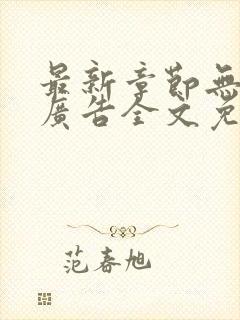 最新章節無
廣告全文免
范春旭